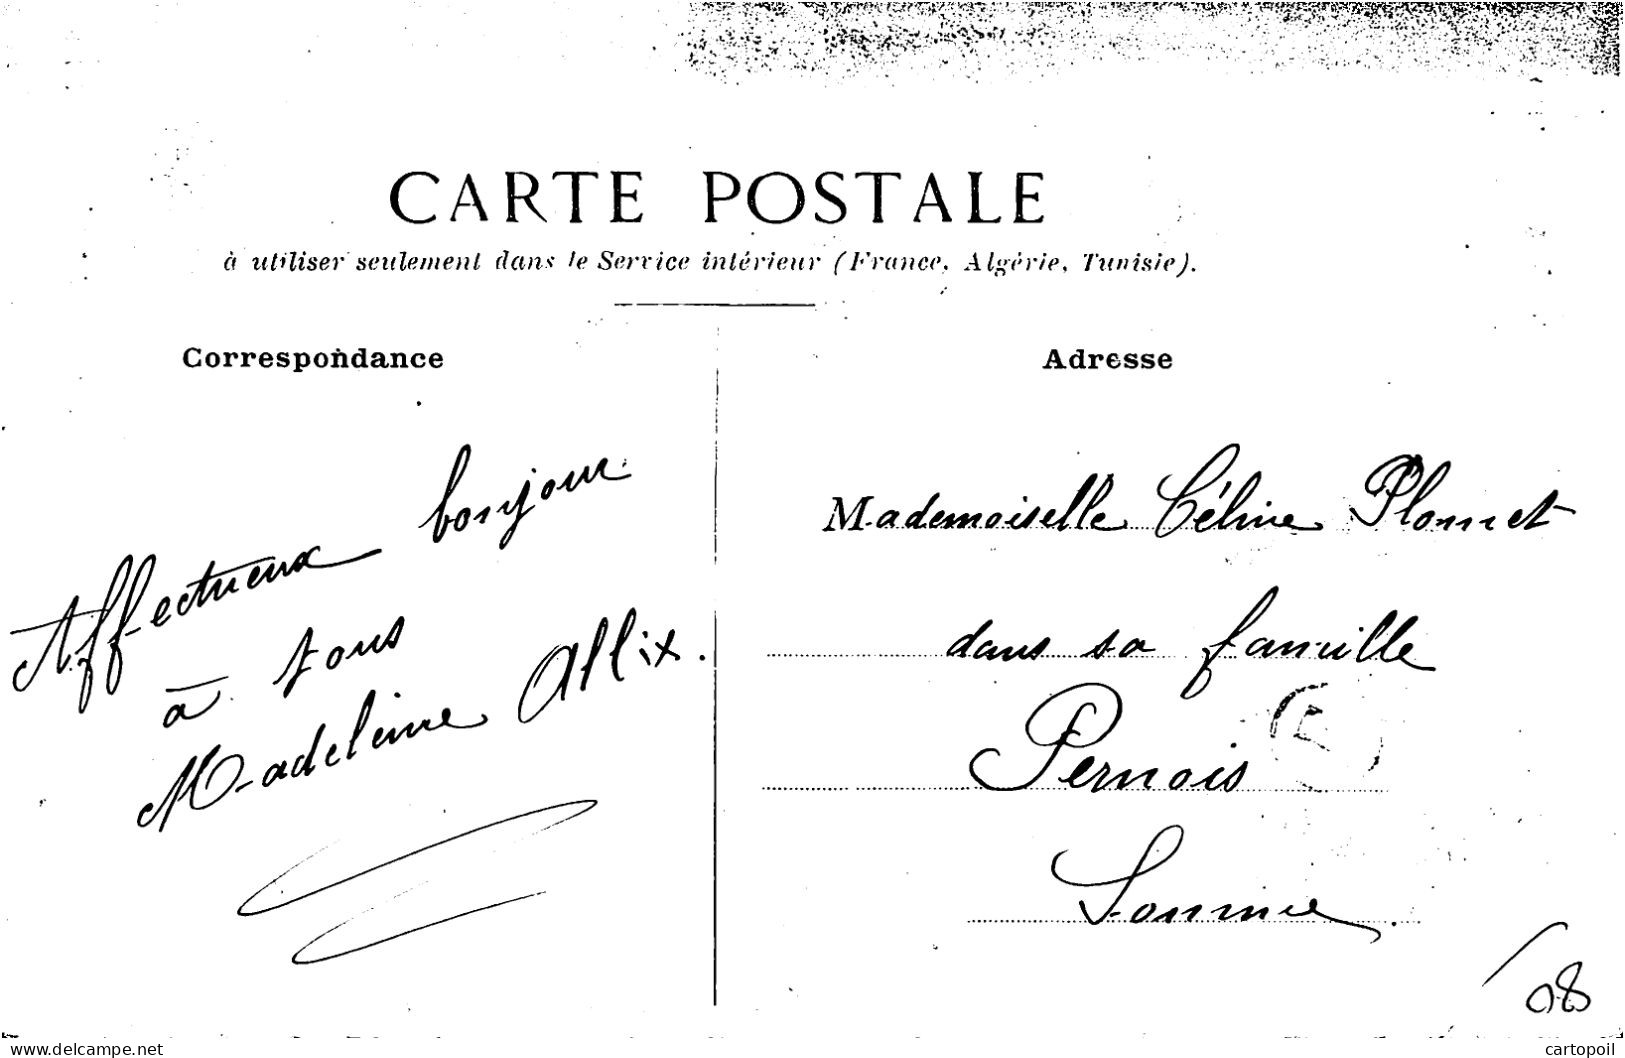 CARTE POSTALE
à utiliser seulement dans le Service intérieur (France, Algérie, Tunisie).
Correspondance
Affectueux bonjour
à tous
Madeleine Allix.
Adresse
Mademoiselle Céline Plomet
dans sa famille
Pernois
Somme
08
www.delcampe.net
cartopoil